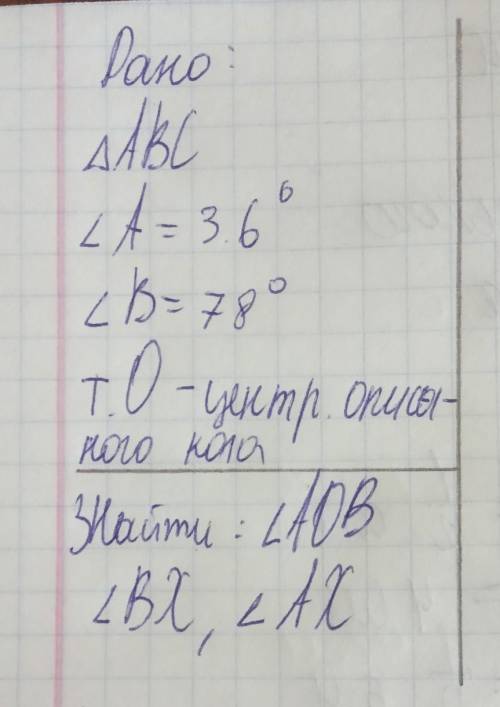 Дано:
△ABC
∠A = 36°
∠B = 78°
т. O - центр. описа-
ного кола
Знайти: ∠AOB
∠BX, ∠AX